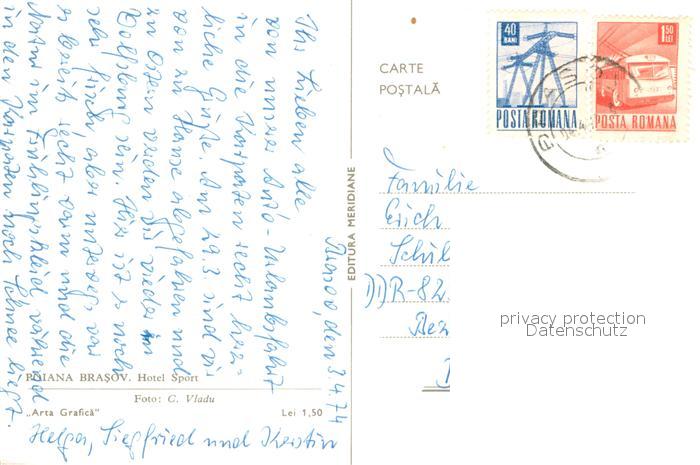 Brașov, den 3.4.74
Ihr Lieben alle
von unser Auto-Urlaubsfahrt
in die Karpaten recht herz-
liche Grüße. Am 29.3 sind wir
von zu Hause abgefahren und
in wieder in
sein. Hier ist es noch
sehr aber
es bereits recht warm und die
Natur im Frühlingskleid während
in den Karpaten noch Schnee liegt.
Helga, Siegfried und Kerstin
POIANA BRAȘOV. Hotel Sport
Foto: C. Vladu
„Arta Grafică”
Lei 1,50
EDITURA MERIDIANE
CARTE
POȘTALĂ
40
BANI
POSTA ROMANA
1,50
LEI
POSTA ROMANA
Familie
Erich
Schul
DDR-82
Bez
privacy protection
Datenschutz